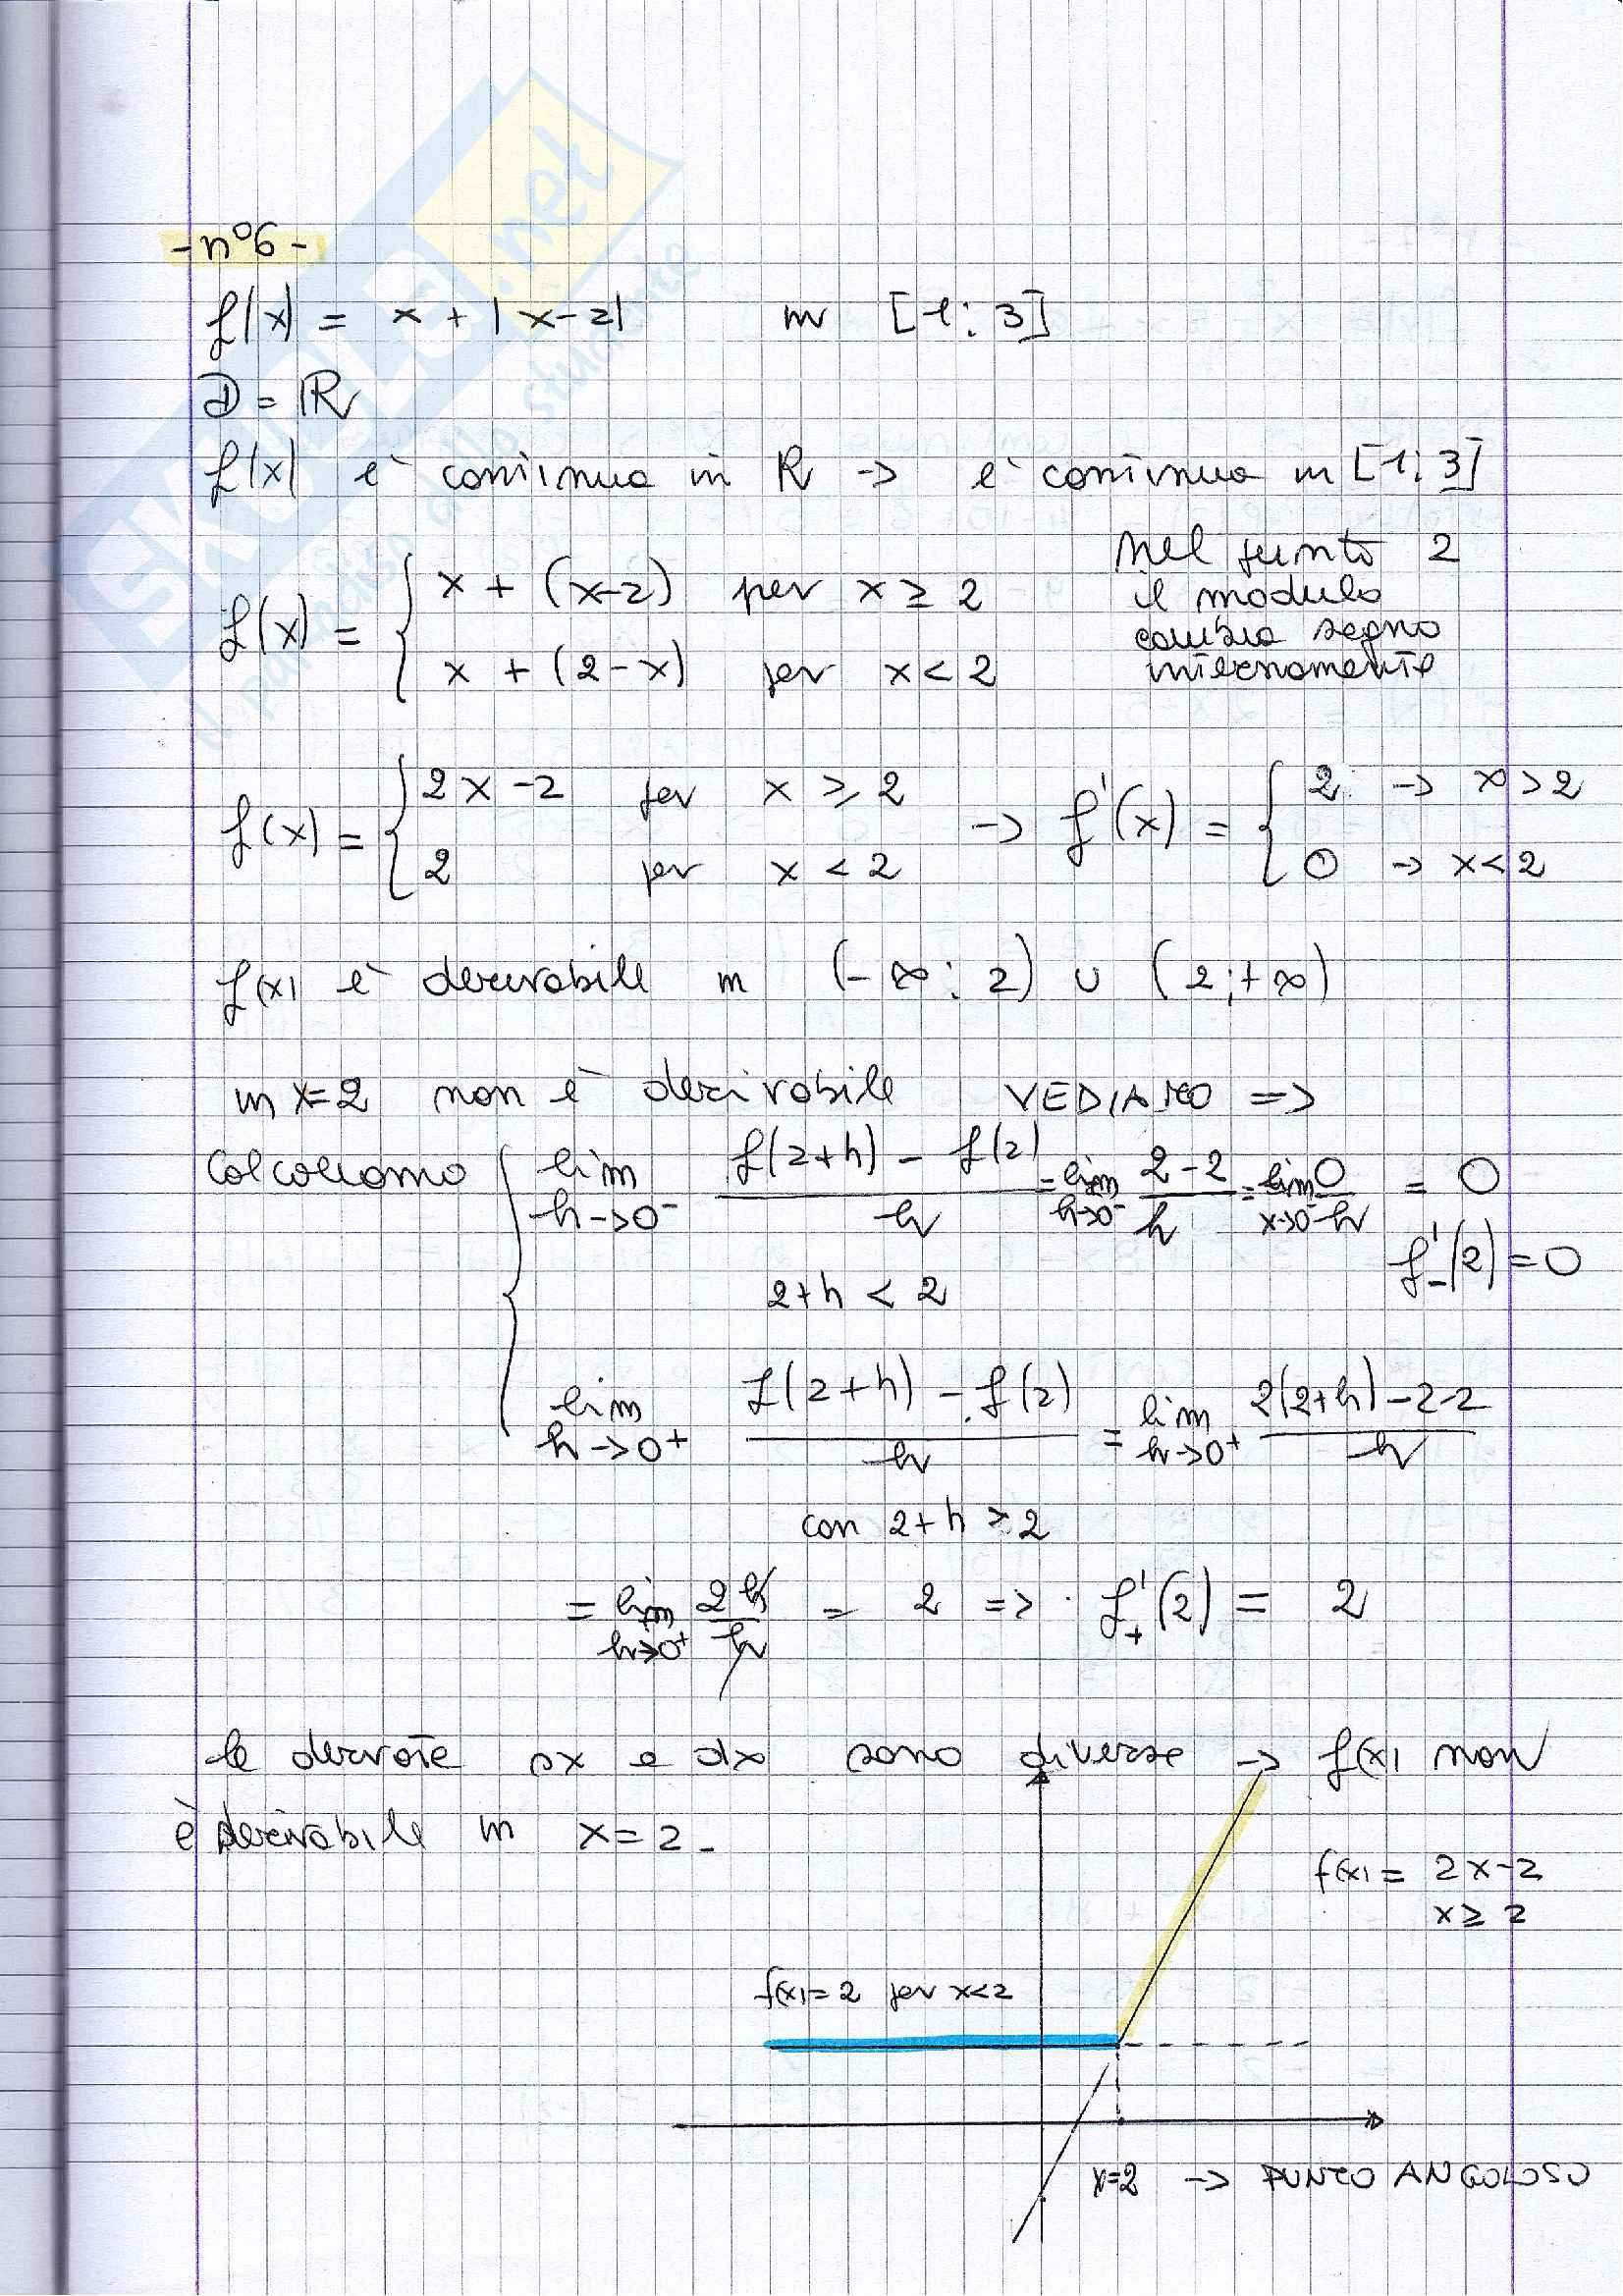 -n°6-
f(x) = x + |x-2| in [1; 3]
D = ℝ
f(x) è continua in R → è continua in [1; 3]
f(x) = { x + (x-2) per x ≥ 2
x + (2-x) per x < 2
nel punto 2
il modulo
cambia segno
internamente
f(x) = { 2x-2 per x ≥ 2 → f'(x) = { 2 → x > 2
2 per x < 2 0 → x < 2
f(x) è derivabile in (-∞; 2) ∪ (2; +∞)
in x=2 non è derivabile VEDIAMO =>
Calcoliamo { lim h→0⁻ f(2+h) - f(2) / h = lim h→0⁻ 2-2 / h = lim x→0⁻ 0 / h = 0
f'₋(2) = 0
2+h < 2
lim h→0⁺ f(2+h) - f(2) / h = lim h→0⁺ 2(2+h)-2-2 / h
con 2+h > 2
= lim h→0⁺ 2h / h = 2 => f'₊(2) = 2
le derivate sx e dx sono diverse → f(x) non
è derivabile in x = 2.
f(x) = 2x-2
x ≥ 2
f(x) = 2 per x<2
x=2 → PUNTO ANGOLOSO
SKUOLA.net
il paradiso dello studente